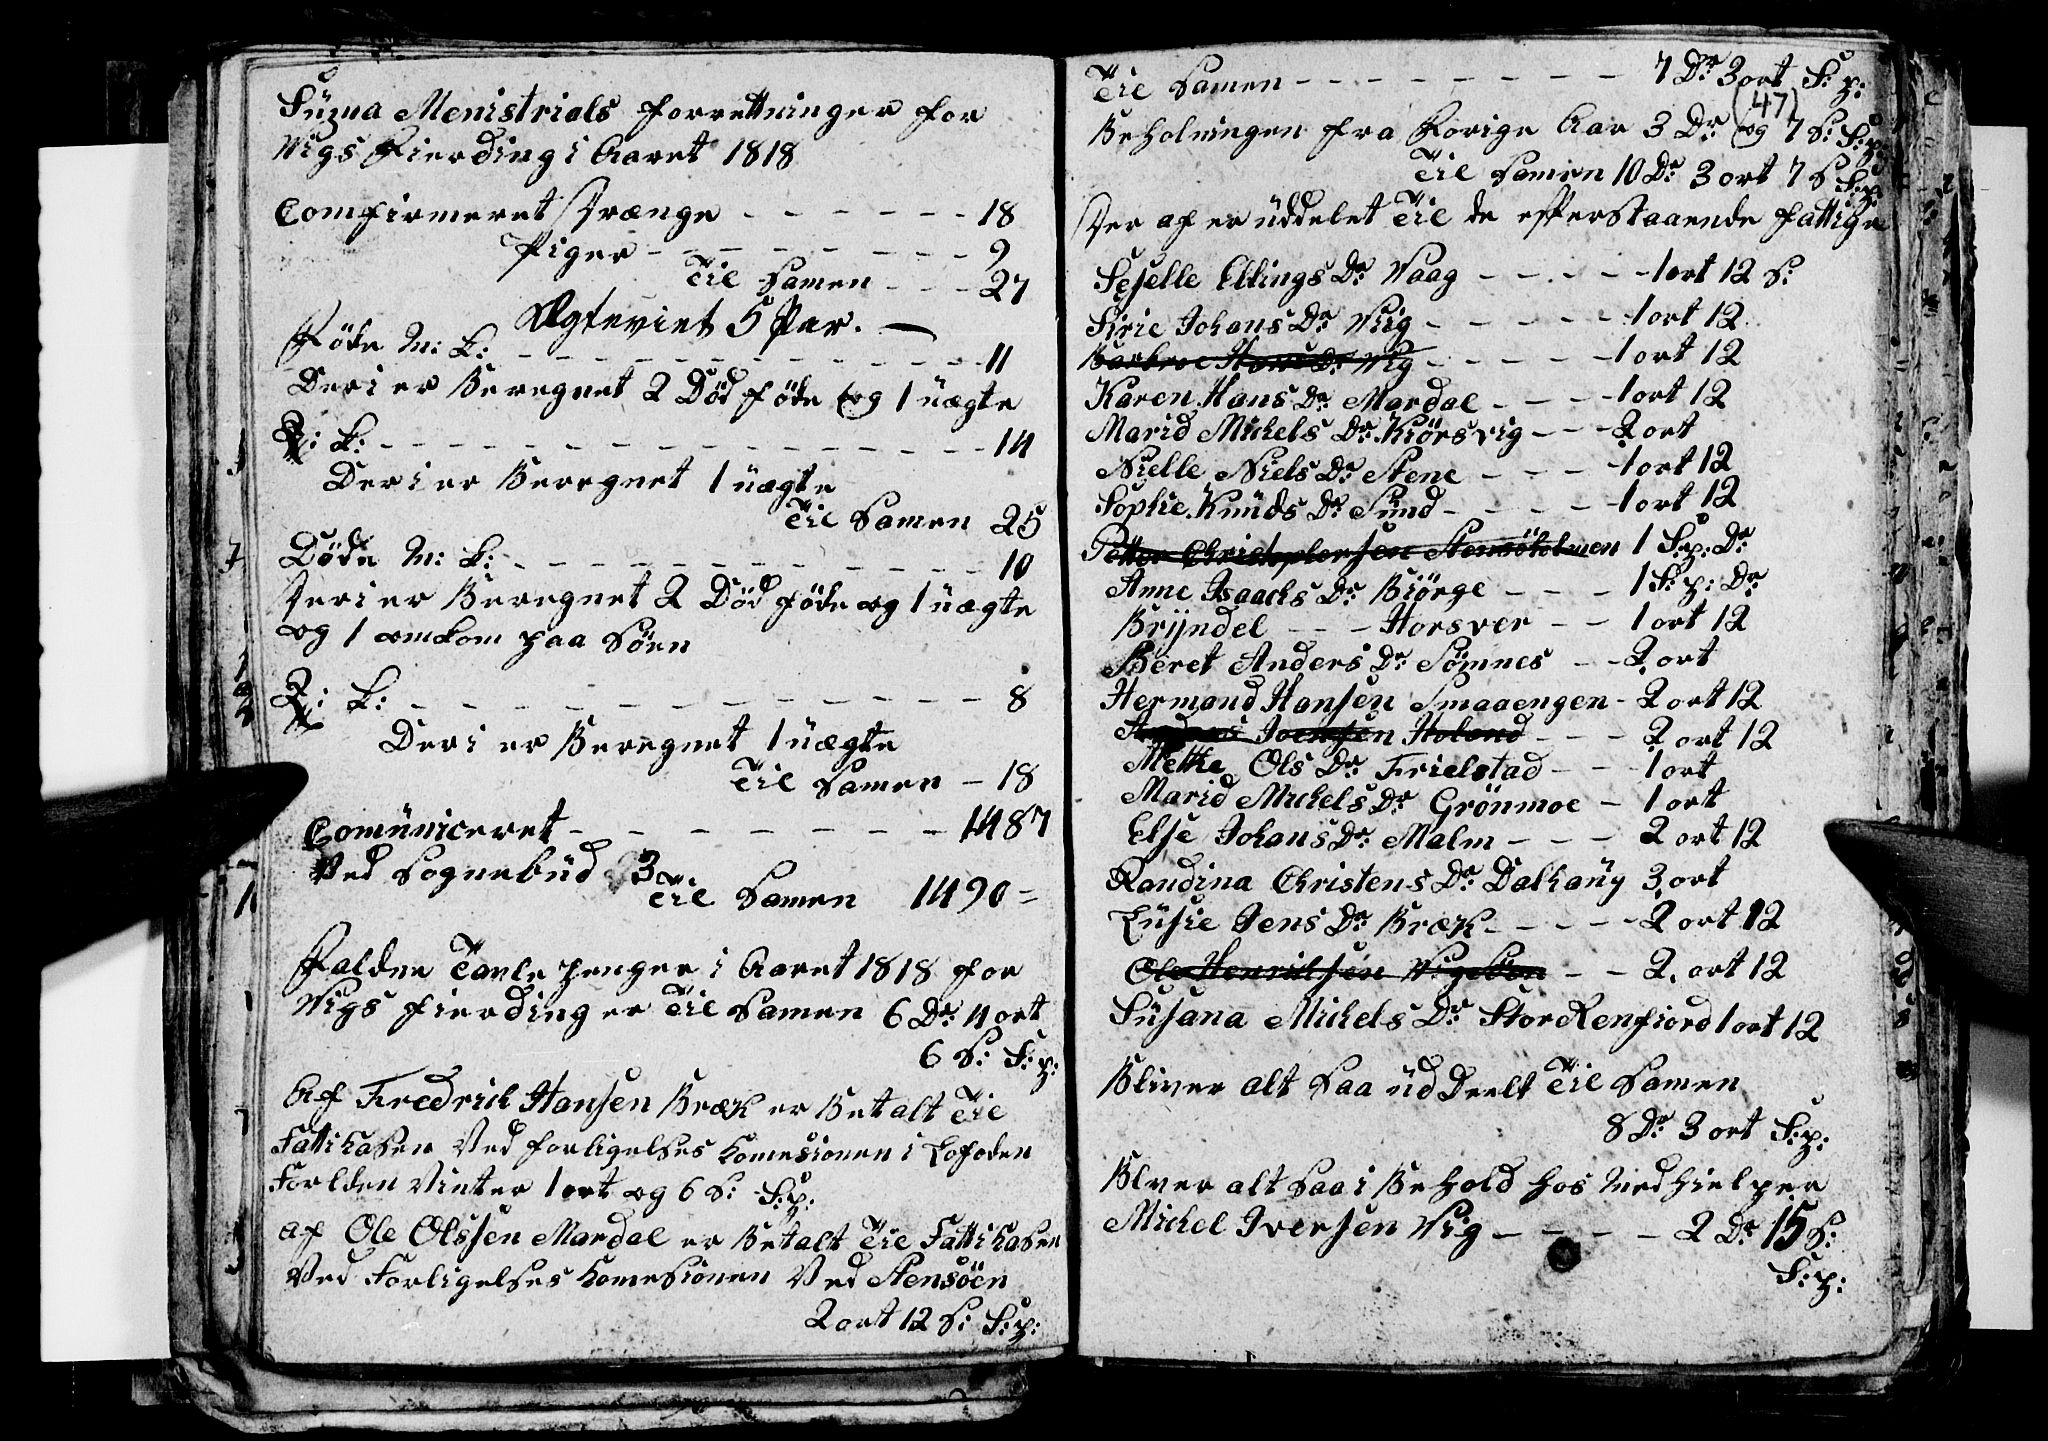 Süzna Menistrials forrettninger for
Vigs Fierding i Aaret 1818
Comfirmeret Drænge - - - - - - 18
Piger - - - - - - - - 9
Til Samen - - - 27
Ægteviet 5 Par. —
Föde M: k: - - - - - - - - - - - 11
Der i er Beregnet 2 Död föde og 1 uægte
Q: k: - - - - - - - - - - - - 14
Der i er Beregnet 1 uægte
Til Samen 25
Döde M: k: - - - - - - - - - - 10
Der i er Beregnet 2 Död föde og 1 uægte
og 1 omkom paa Söen
Q: k: - - - - - - - - - - - - 8
Der i er Beregnet 1 uægte
Til Samen - 18
Comüniceret - - - - - - - - 1487
Ved Sognebüd 3
Til Samen 1490 =
Falden Tavle penger i Aaret 1818 for
Vigs fierding er Til Samen 6 Dr: 4 ort
6 S: S:p:
Af Fredrich Hansen Bræk er Betalt Til
Fattikasen Ved forligelses Komesionen i Lofoden
Forlden Vinter 1 ort og 6 S: S:p:
af Ole Olssen Mardal er Betalt Til Fattikasen
Ved Forligelses Komesionen Ved Stensöen
2 ort 12 S: S:p:
Til Samen - - - - - - - - - 7 Dr: 3 ort S:p:
(47)
Beholningen fra Forige Aar 3 Dr: og 7 S: S:p:
Til Samen 10 Dr: 3 ort 7 S S:p:
Der af er üddelet Til de efterstaaende fattige
Seselle Ellings Dr: Vaag - - - - - 1 ort 12 S:
Sirie Johans Dr: Viig - - - - - 1 ort 12
Barbroe Hans Dr: Vig - - - - - 1 ort 12
Karen Hans Dr: Mardal - - - - 1 ort 12
Marid Michels Dr: Kiörsvig - - - 2 ort
Nielle Niels Dr: Stene - - - - 1 ort 12
Sophie Knüds Dr: Sünd - - - - 1 ort 12
Petter Christophersen Stensöholmen 1 S:p: Dr:
Anne Isaachs Dr: Biörge - - - 1 S:p: Dr:
Brÿndel - - - Horsver - - 1 ort 12
Beret Anders Dr: Sömnes - - 2 ort
Hermand Hansen Smaaengen - 2 ort 12
Anders Joensen Holand - - - 2 ort 12
Methe Ols Dr: Frielstad - - 1 ort
Marid Michels Dr: Grönmoe - 1 ort
Else Johans Dr: Malm - - - 2 ort 12
Randina Christens Dr: Dalhaüg 3 ort
Lüsie Jens Dr: Bræk - - - - 2 ort 12
Ole Henrichsen - - 2 ort 12
Süsana Michels Dr: Storkenfiord 1 ort 12
Bliver alt Saa üd Deelt Til Samen
8 Dr: 3 ort S:p:
Blver alt Saa i Behold hos Medhielper
Michel Iversen Vig - - - - - 2 Dr: 15 S:
S:p: